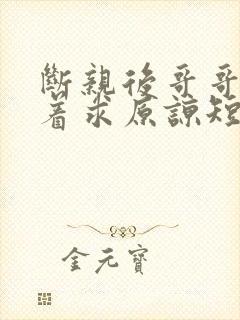 斷親後哥哥
着求原諒短
金元寶